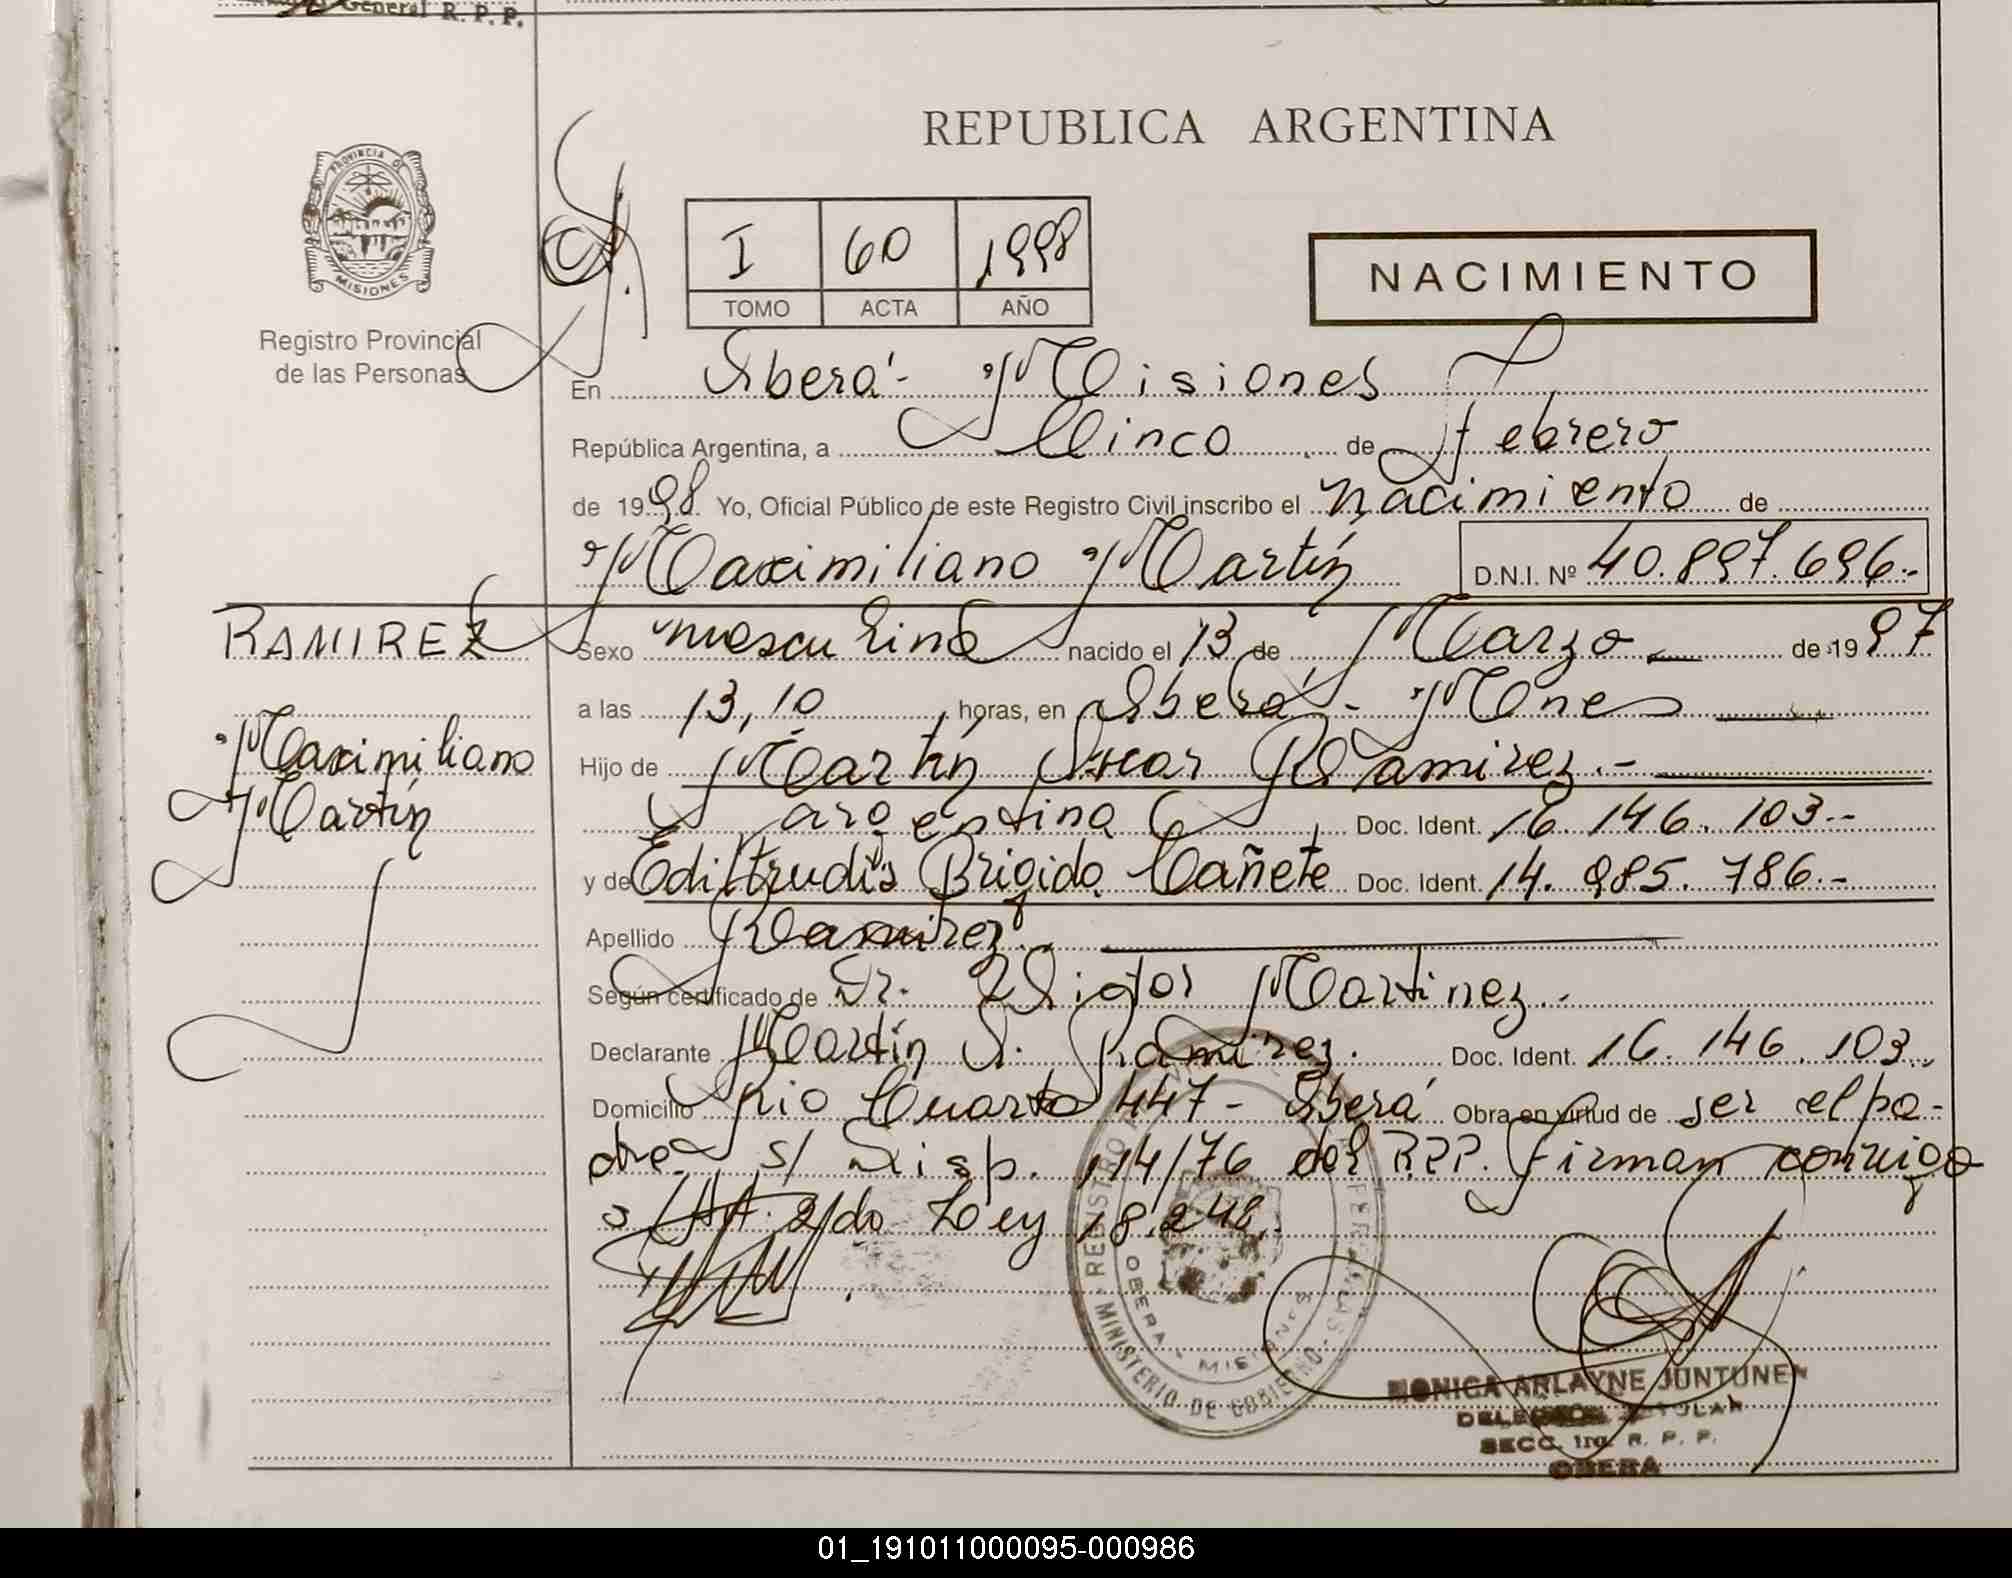 General R. P. P.
REPUBLICA ARGENTINA
PROVINCIA DE
MISIONES
Registro Provincial
de las Personas
I 60 1998
TOMO ACTA AÑO
NACIMIENTO
En Oberá - Misiones
República Argentina, a Cinco de Febrero
de 1998 Yo, Oficial Público de este Registro Civil inscribo el nacimiento de
Maximiliano Martín D.N.I. Nº 40.897.696.-
RAMIREZ
Maximiliano
Martín
Sexo masculino nacido el 13 de Marzo de 1997
a las 13,10 horas, en Oberá - Mnes
Hijo de Martín Oscar Ramirez.-
argentina Doc. Ident. 16.146.103.-
y de Ediltrudis Brigida Cañete Doc. Ident. 14.985.786.-
Apellido Ramirez.
Según certificado de Dr. Victor Martinez.-
Declarante Martín O. Ramirez. Doc. Ident. 16.146.103.
Domicilio Rio Cuarto 447 - Oberá Obra en virtud de ser el pa-
dre. s/ Disp. 114/76 del R.P.P. Firman conmigo
s/Art. 2/do Ley 18.248.
REGISTRO PERSONAS
MINISTERIO DE GOBIERNO
OBERA - MISIONES
MONICA ARLAYNE JUNTUNEN
TITULAR
SECC. 1ra. R. P. P.
OBERA
01_191011000095-000986